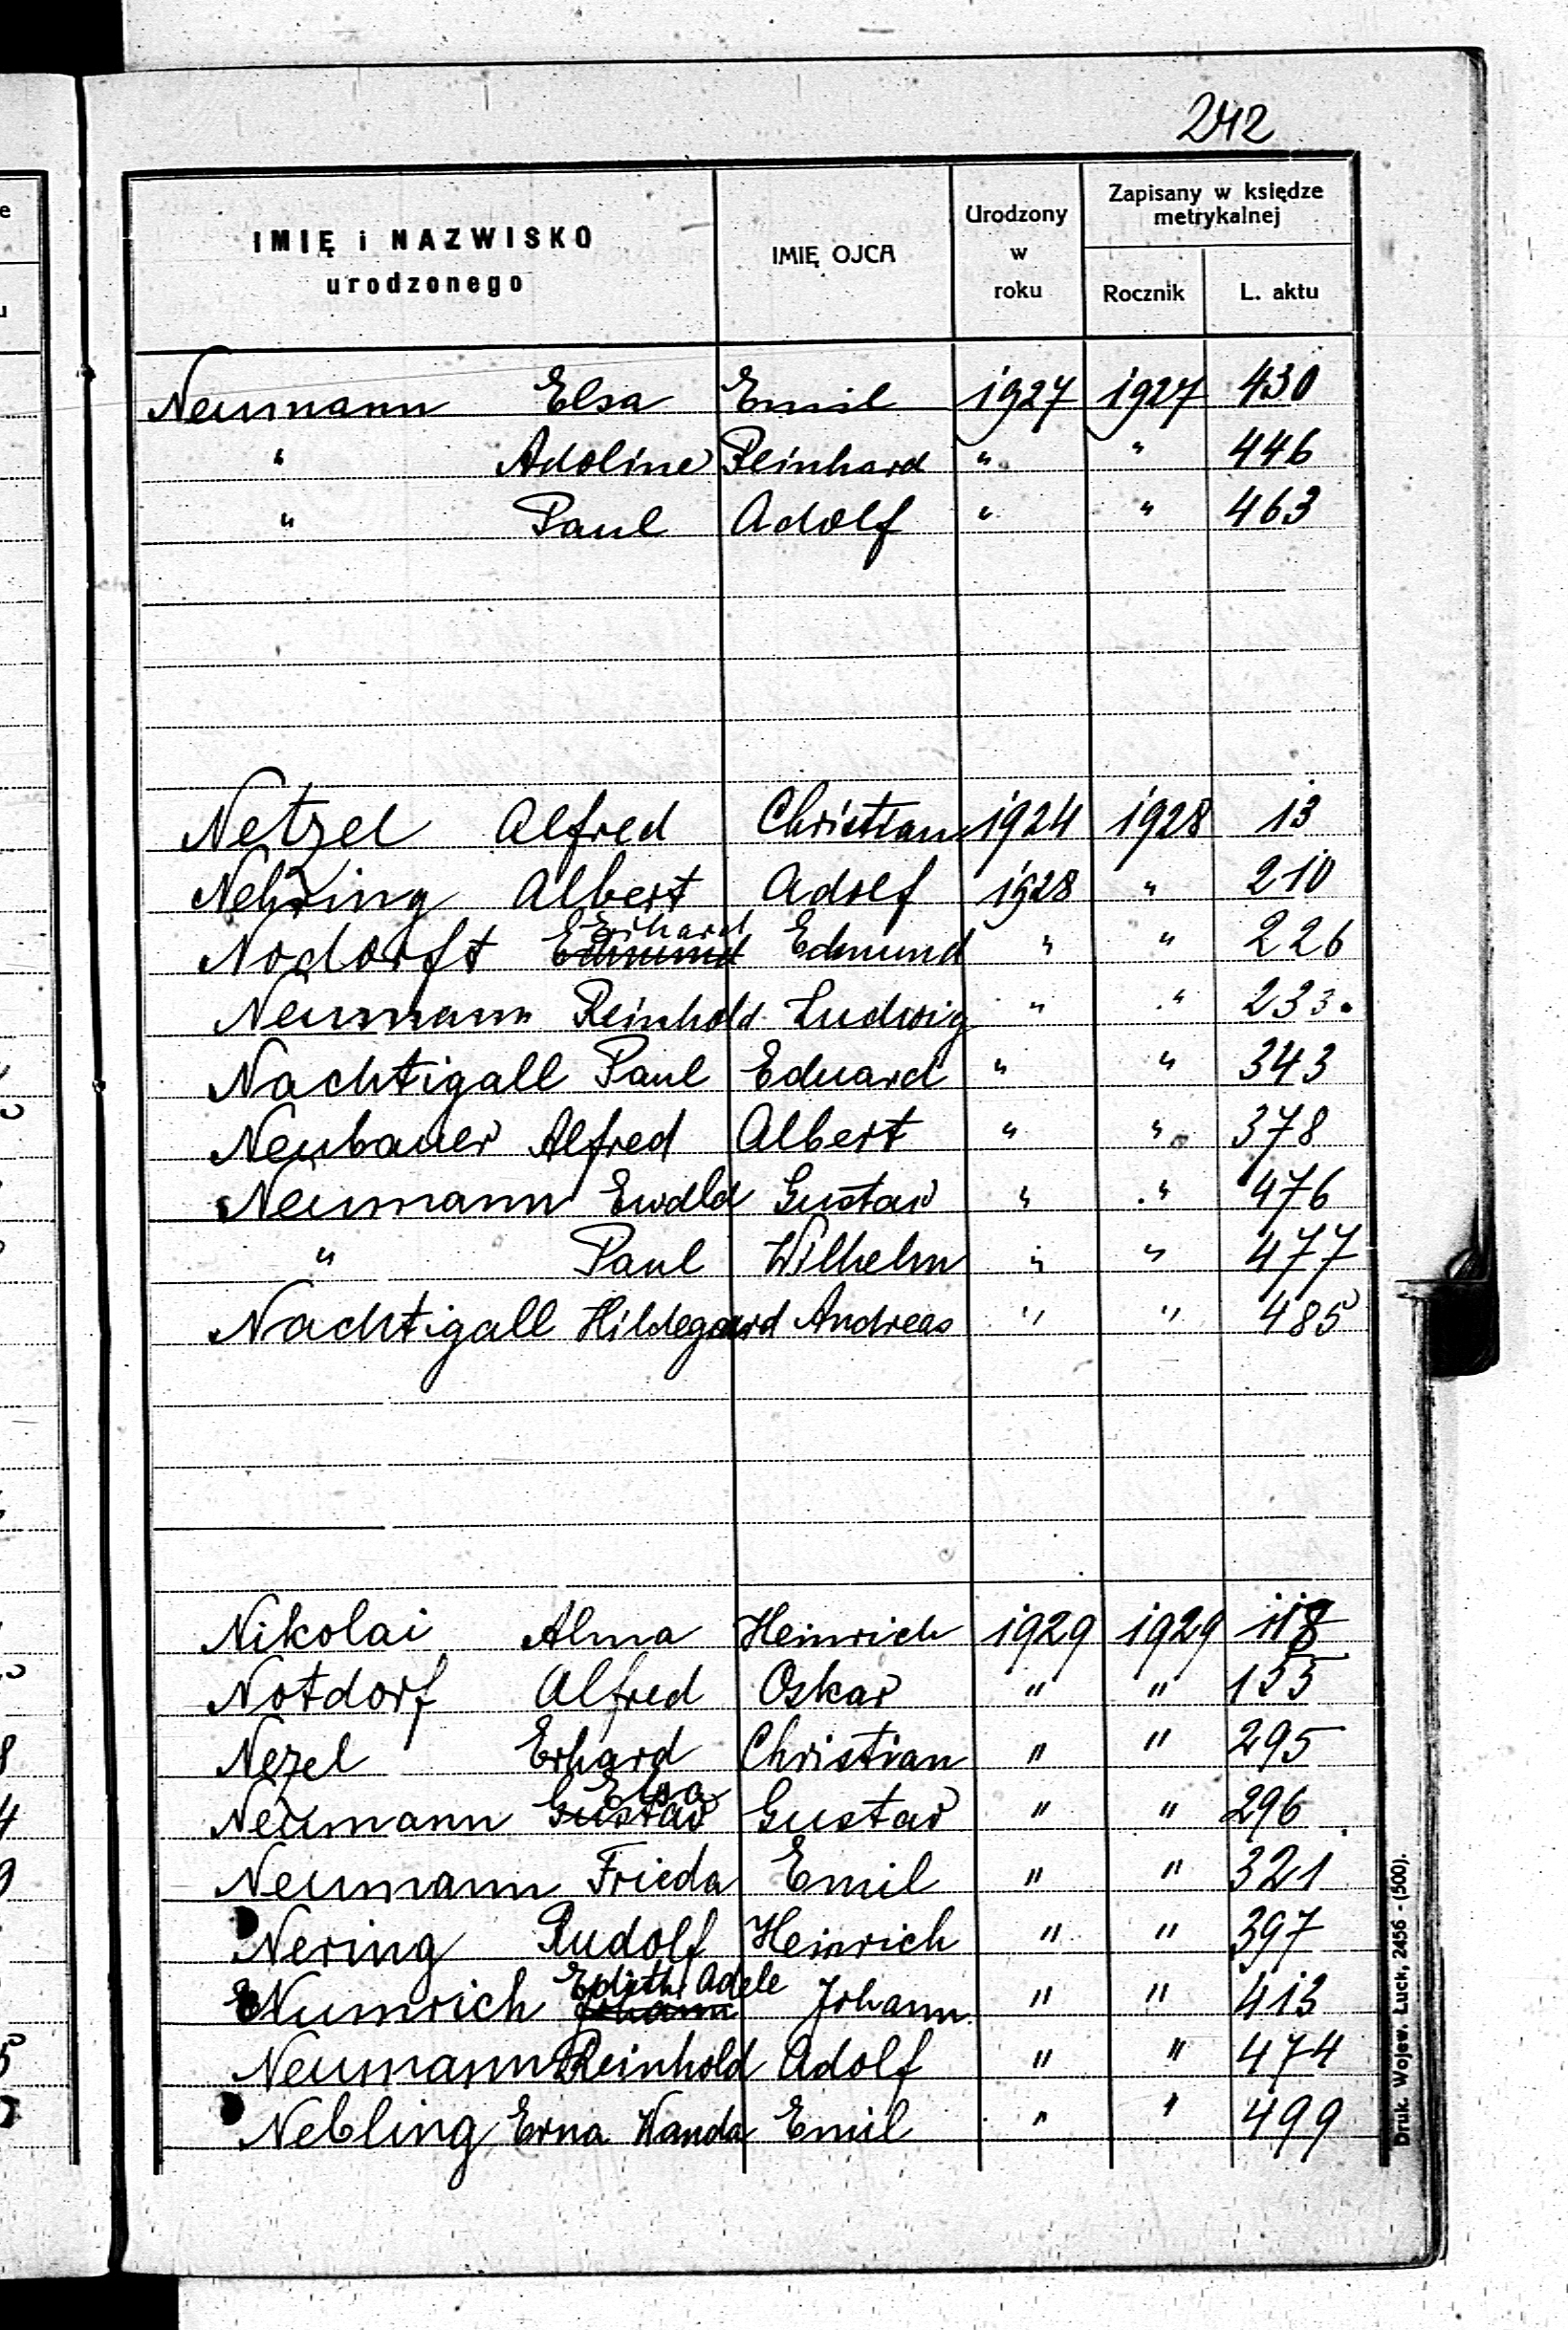 242
IMIĘ i NAZWISKO
urodzonego
IMIĘ OJCA
Urodzony
w
roku
Zapisany w księdze
metrykalnej
Rocznik
L. aktu
Neumann Elsa Emil 1927 1927 430
" Adoline Reinhard " " 446
" Paul Adolf " " 463
Netzel Alfred Christian 1924 1928 13
Nehring Albert Adolf 1928 " 210
Erhard
Nodorft Edmund Edmund " " 226
Neumann Reinhold Ludwig " " 233.
Nachtigall Paul Eduard " " 343
Neubauer Alfred Albert " " 378
Neumann Ewald Gustav " " 476
" Paul Wilhelm " " 477
Nachtigall Hildegard Andreas " " 485
Nikolai Alma Heinrich 1929 1929 118
Notdorf Alfred Oskar " " 155
Nezel Erhard Christian " " 295
Elsa
Neumann Gustav Gustav " " 296
Neumann Frieda Emil " " 321
Nering Rudolf Heinrich " " 397
Edith Adele
Numrich Johann Johann " " 413
Neumann Reinhold Adolf " " 474
Nebling Erna Wanda Emil " " 499
Druk. Wojew. Łuck, 2456 - (500).